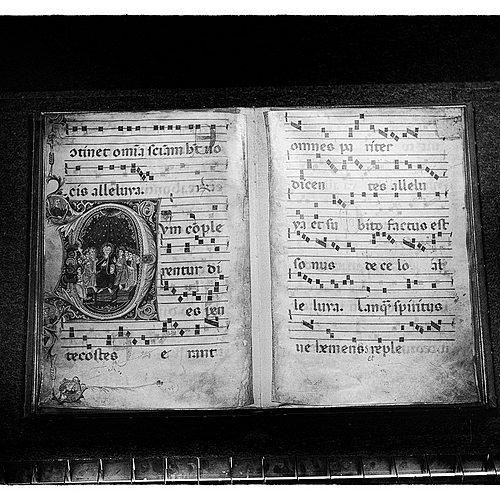 otinet omia sciam bt uo
cis alleluya.
Vm cōple
rentur di
es pen
tecostes e rant
omnes pa riter
dicen tes allelu
ya et su bito factus est
so nus de ce lo al
le luya. Tanq̄ spiritus
ue hemens reple